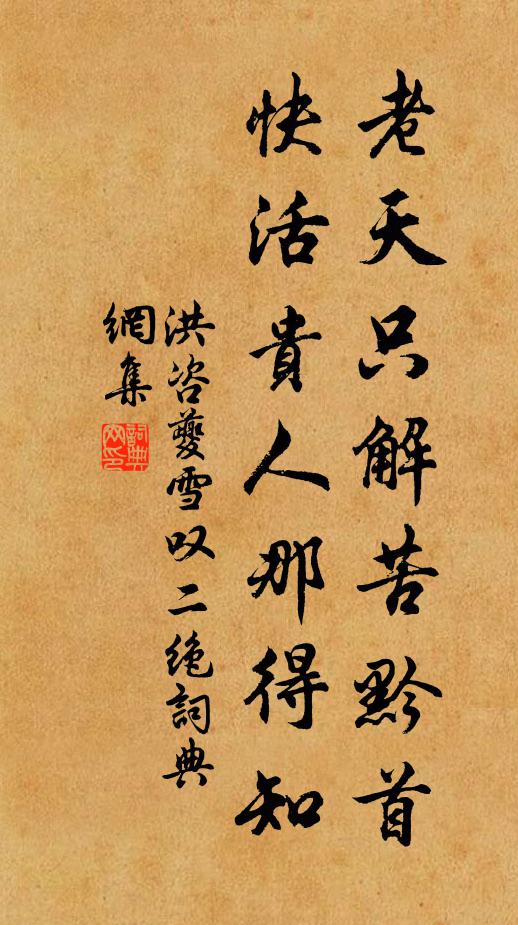 老天只解苦黔首
快活貴人那得知
洪咨夔雪叹二绝詞典
網集
詞典
网印